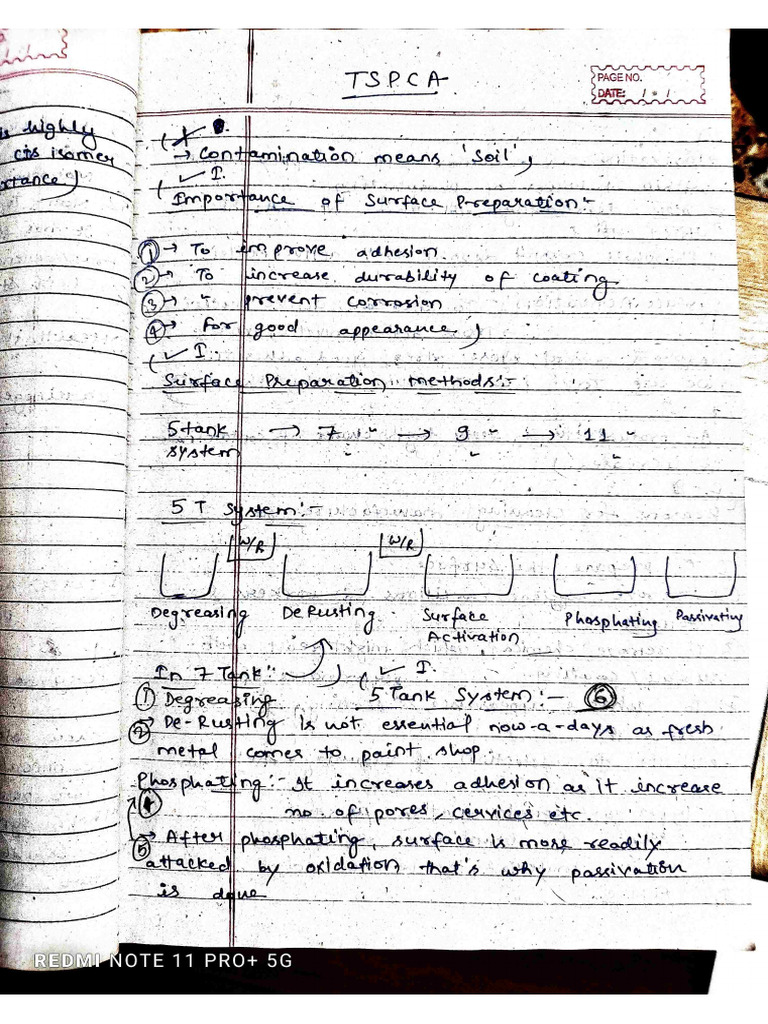 is highly
cis isomer
rtance)
TSPCA
PAGE NO.
DATE:
→ Contamination means 'Soil',
(✓ I.
Importance of Surface Preparation:-
① → To improve adhesion.
② → To increase durability of coating
③ → " prevent corrosion
④ → for good appearance)
(✓ I.
Surface Preparation methods:-
5 tank → 7 " → 9 " → 11 "
system " " "
5 T System:-
W/R W/R
Degreasing DeRusting. Surface Phosphating Passivating
Activation
In 7 Tank:- ) (✓ I.
① Degreasing 5 Tank System:- ⑥
② → De-Rusting is not essential now-a-days as fresh
metal comes to paint shop.
Phosphating:- It increases adhesion as it increase
④ no. of pores, cervices etc.
⑤ → After phosphating, surface is more readily
attacked by oxidation that's why passivation
is done
REDMI NOTE 11 PRO+ 5G